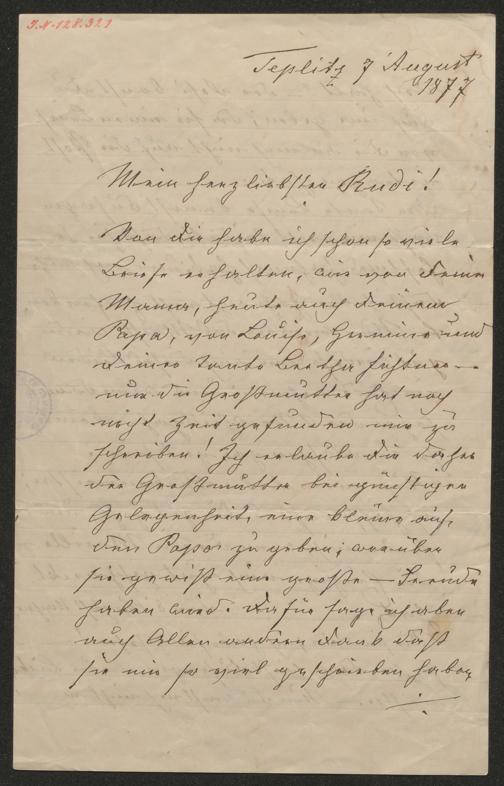 I.N.-128.321
Teplitz 7 August
1877
Mein herzliebster Rudi!
Von dir habe ich schon so viele
Briefe erhalten, wie von deiner
Mama, heute auch deinem
Papa, von Louise, Hermine und
deiner Tante Bertha Fichtner –
nur die Großmutter hat noch
nicht Zeit gefunden mir zu
schreiben! Ich erlaube dir daher
der Großmutter bei günstiger
Gelegenheit, eine kleine auf
den Popo zu geben; worüber
sie gewiß eine große – Freude
haben wird. Dafür sage ich aber
auch Allen andern Dank daß
sie mir so viel geschrieben haben